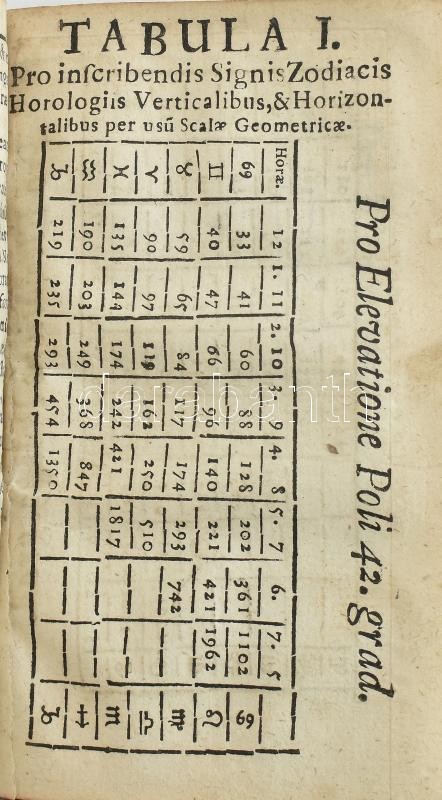 TABULA I.
Pro inſcribendis Signis Zodiacis
Horologiis Verticalibus, & Horizon-
talibus per uſũ Scalæ Geometricæ.
Pro Elevatione Poli 42. grad.
Horæ. 12 1. 11 2. 10 3. 9 4. 8 5. 7 6. 7. 5
♋ 33 41 60 88 128 202 361 1102 ♋
♊ 40 47 66 96 140 221 421 1962 ♌
♉ 59 65 84 117 174 293 742 ♍
♈ 90 97 119 162 250 510 ♎
♓ 135 144 174 242 421 1817 ♏
♒ 190 203 249 368 847 ♐
♑ 219 235 293 454 1350 ♑
darabanth